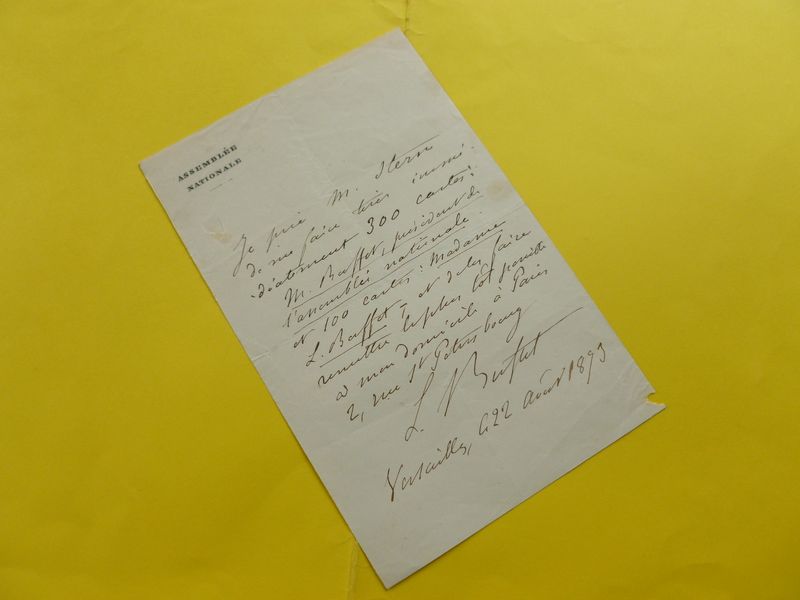 ASSEMBLÉE
NATIONALE
Je prie M. Stern
de me faire tirer immé-
diatement 300 cartes:
M. Buffet, président de
l'assemblée nationale.
et 100 cartes: Madame
L. Buffet - et de les faire
remettre le plus tôt possible
à mon domicile à Paris
2, rue St Pétersbourg
L. Buffet
Versailles, le 22 août 1873